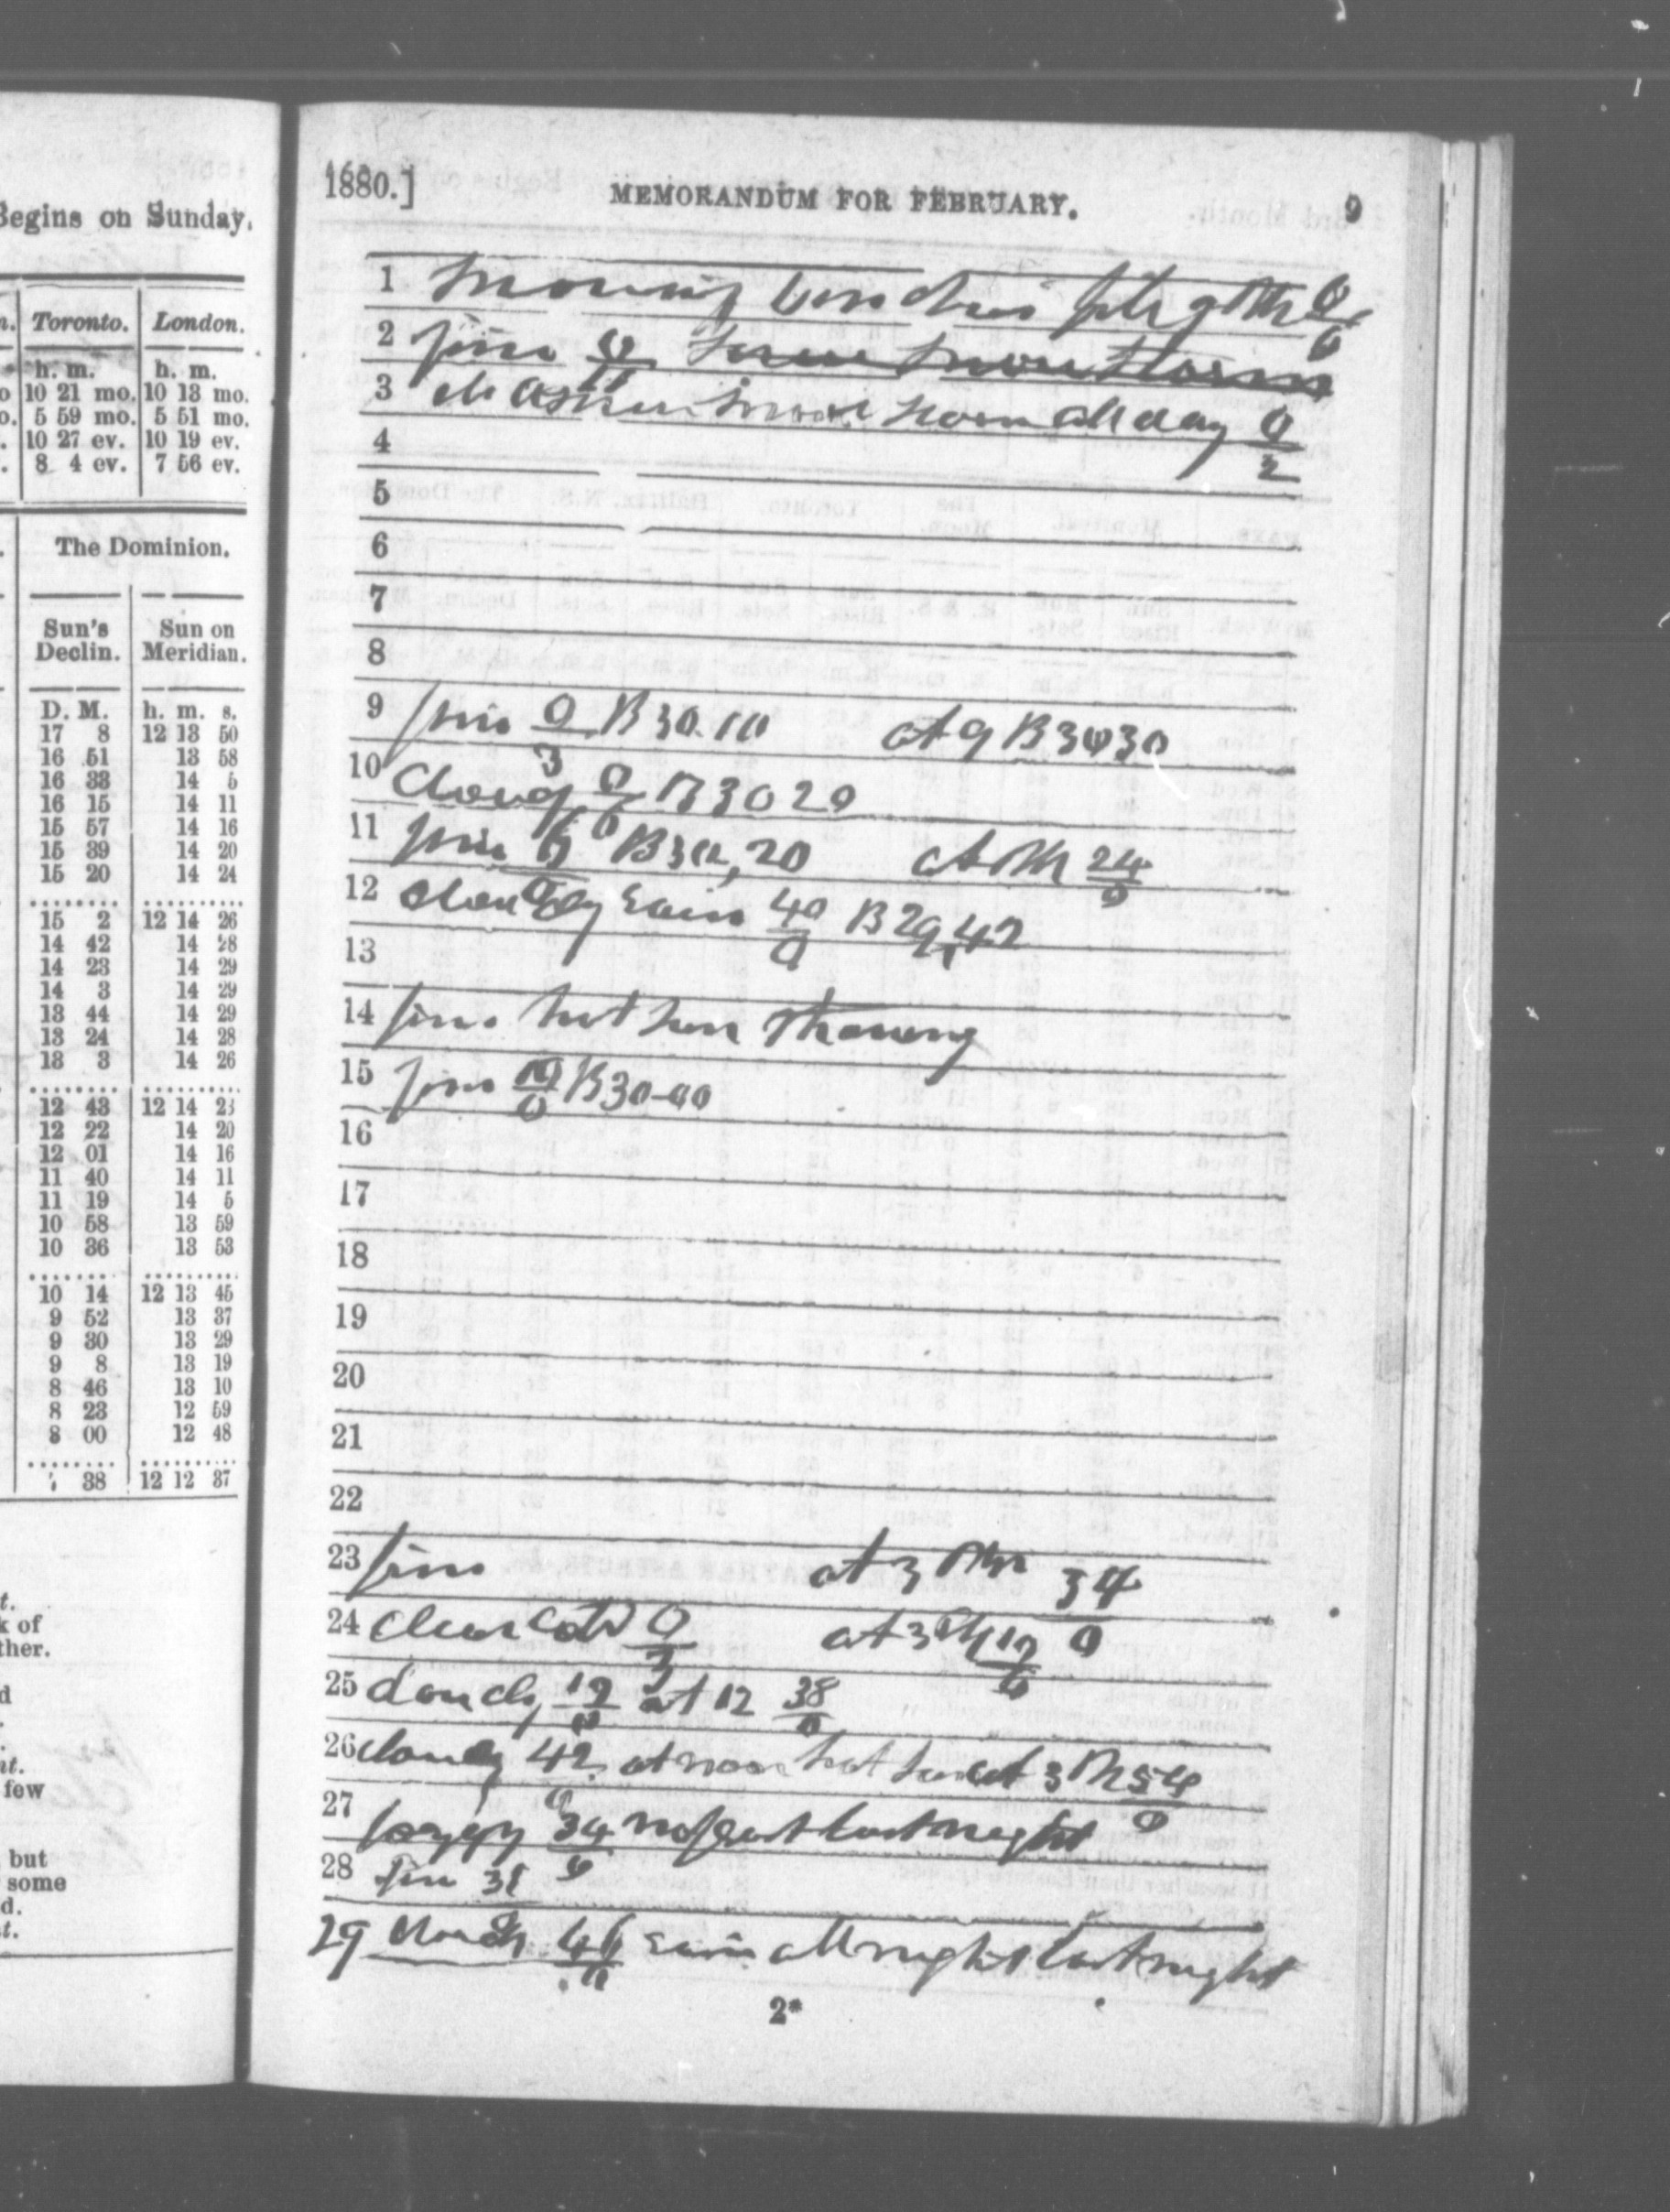 Begins on Sunday.
Toronto. London.
h. m. h. m.
10 21 mo. 10 13 mo.
5 59 mo. 5 51 mo.
10 27 ev. 10 19 ev.
8 4 ev. 7 56 ev.
The Dominion.
Sun's Sun on
Declin. Meridian.
D. M. h. m. s.
17 8 12 13 50
16 51 13 58
16 33 14 5
16 15 14 11
15 57 14 16
15 39 14 20
15 20 14 24
15 2 12 14 26
14 42 14 28
14 23 14 29
14 3 14 29
13 44 14 29
13 24 14 28
13 3 14 26
12 43 12 14 23
12 22 14 20
12 01 14 16
11 40 14 11
11 19 14 5
10 58 13 59
10 36 13 53
10 14 12 13 45
9 52 13 37
9 30 13 29
9 8 13 19
8 46 13 10
8 23 12 59
8 00 12 48
38 12 12 37
t.
k of
ther.
d
nt.
few
but
some
d.
t.
1880.] MEMORANDUM FOR FEBRUARY. 9
1
2 fine
3 snow storm all day 0/2
4
5
6
7
8
9 fine 0/3 B 30.10 at 9 B 30 30
10 cloudy B 30 20
11 fine B 30, 20 at PM 24/0
12 cloudy rain 40/0 B 29,42
13
14 fine hot sun thawing
15 fine 10/0 B 30-00
16
17
18
19
20
21
22
23 fine at 3 PM 34/0
24 clear cold 0/3 at 3 PM 12/0
25 cloudy 12/0 at 12 38/0
26 cloudy 42/0 at noon hot sun at 3 PM 54/0
27 foggy 34/0 no frost last night
28 fine 38
29 cloudy 46/0 rain all night last night
2*